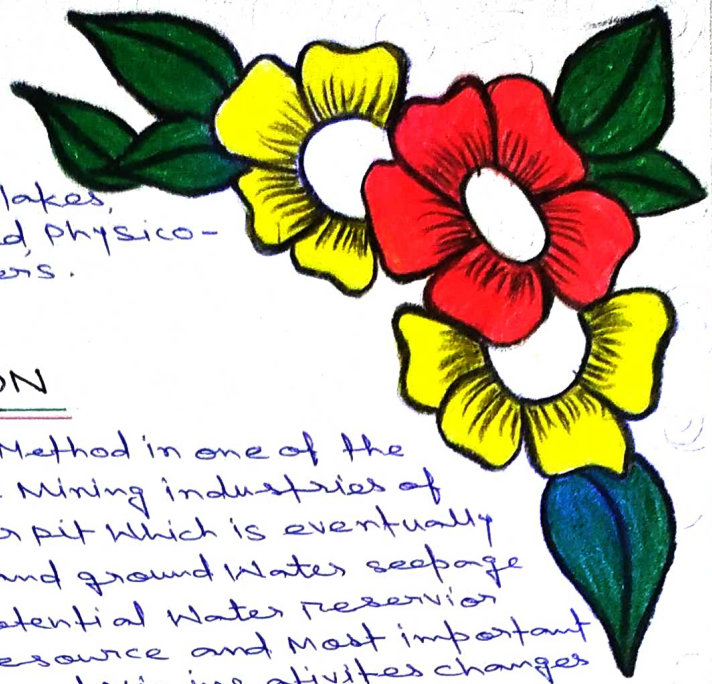 lakes,
d, Physico-
ers.
ON
Method in one of the
Mining industries of
r pit which is eventually
and ground Water seepage
otential Water reservior
esource and Most important
ativites changes